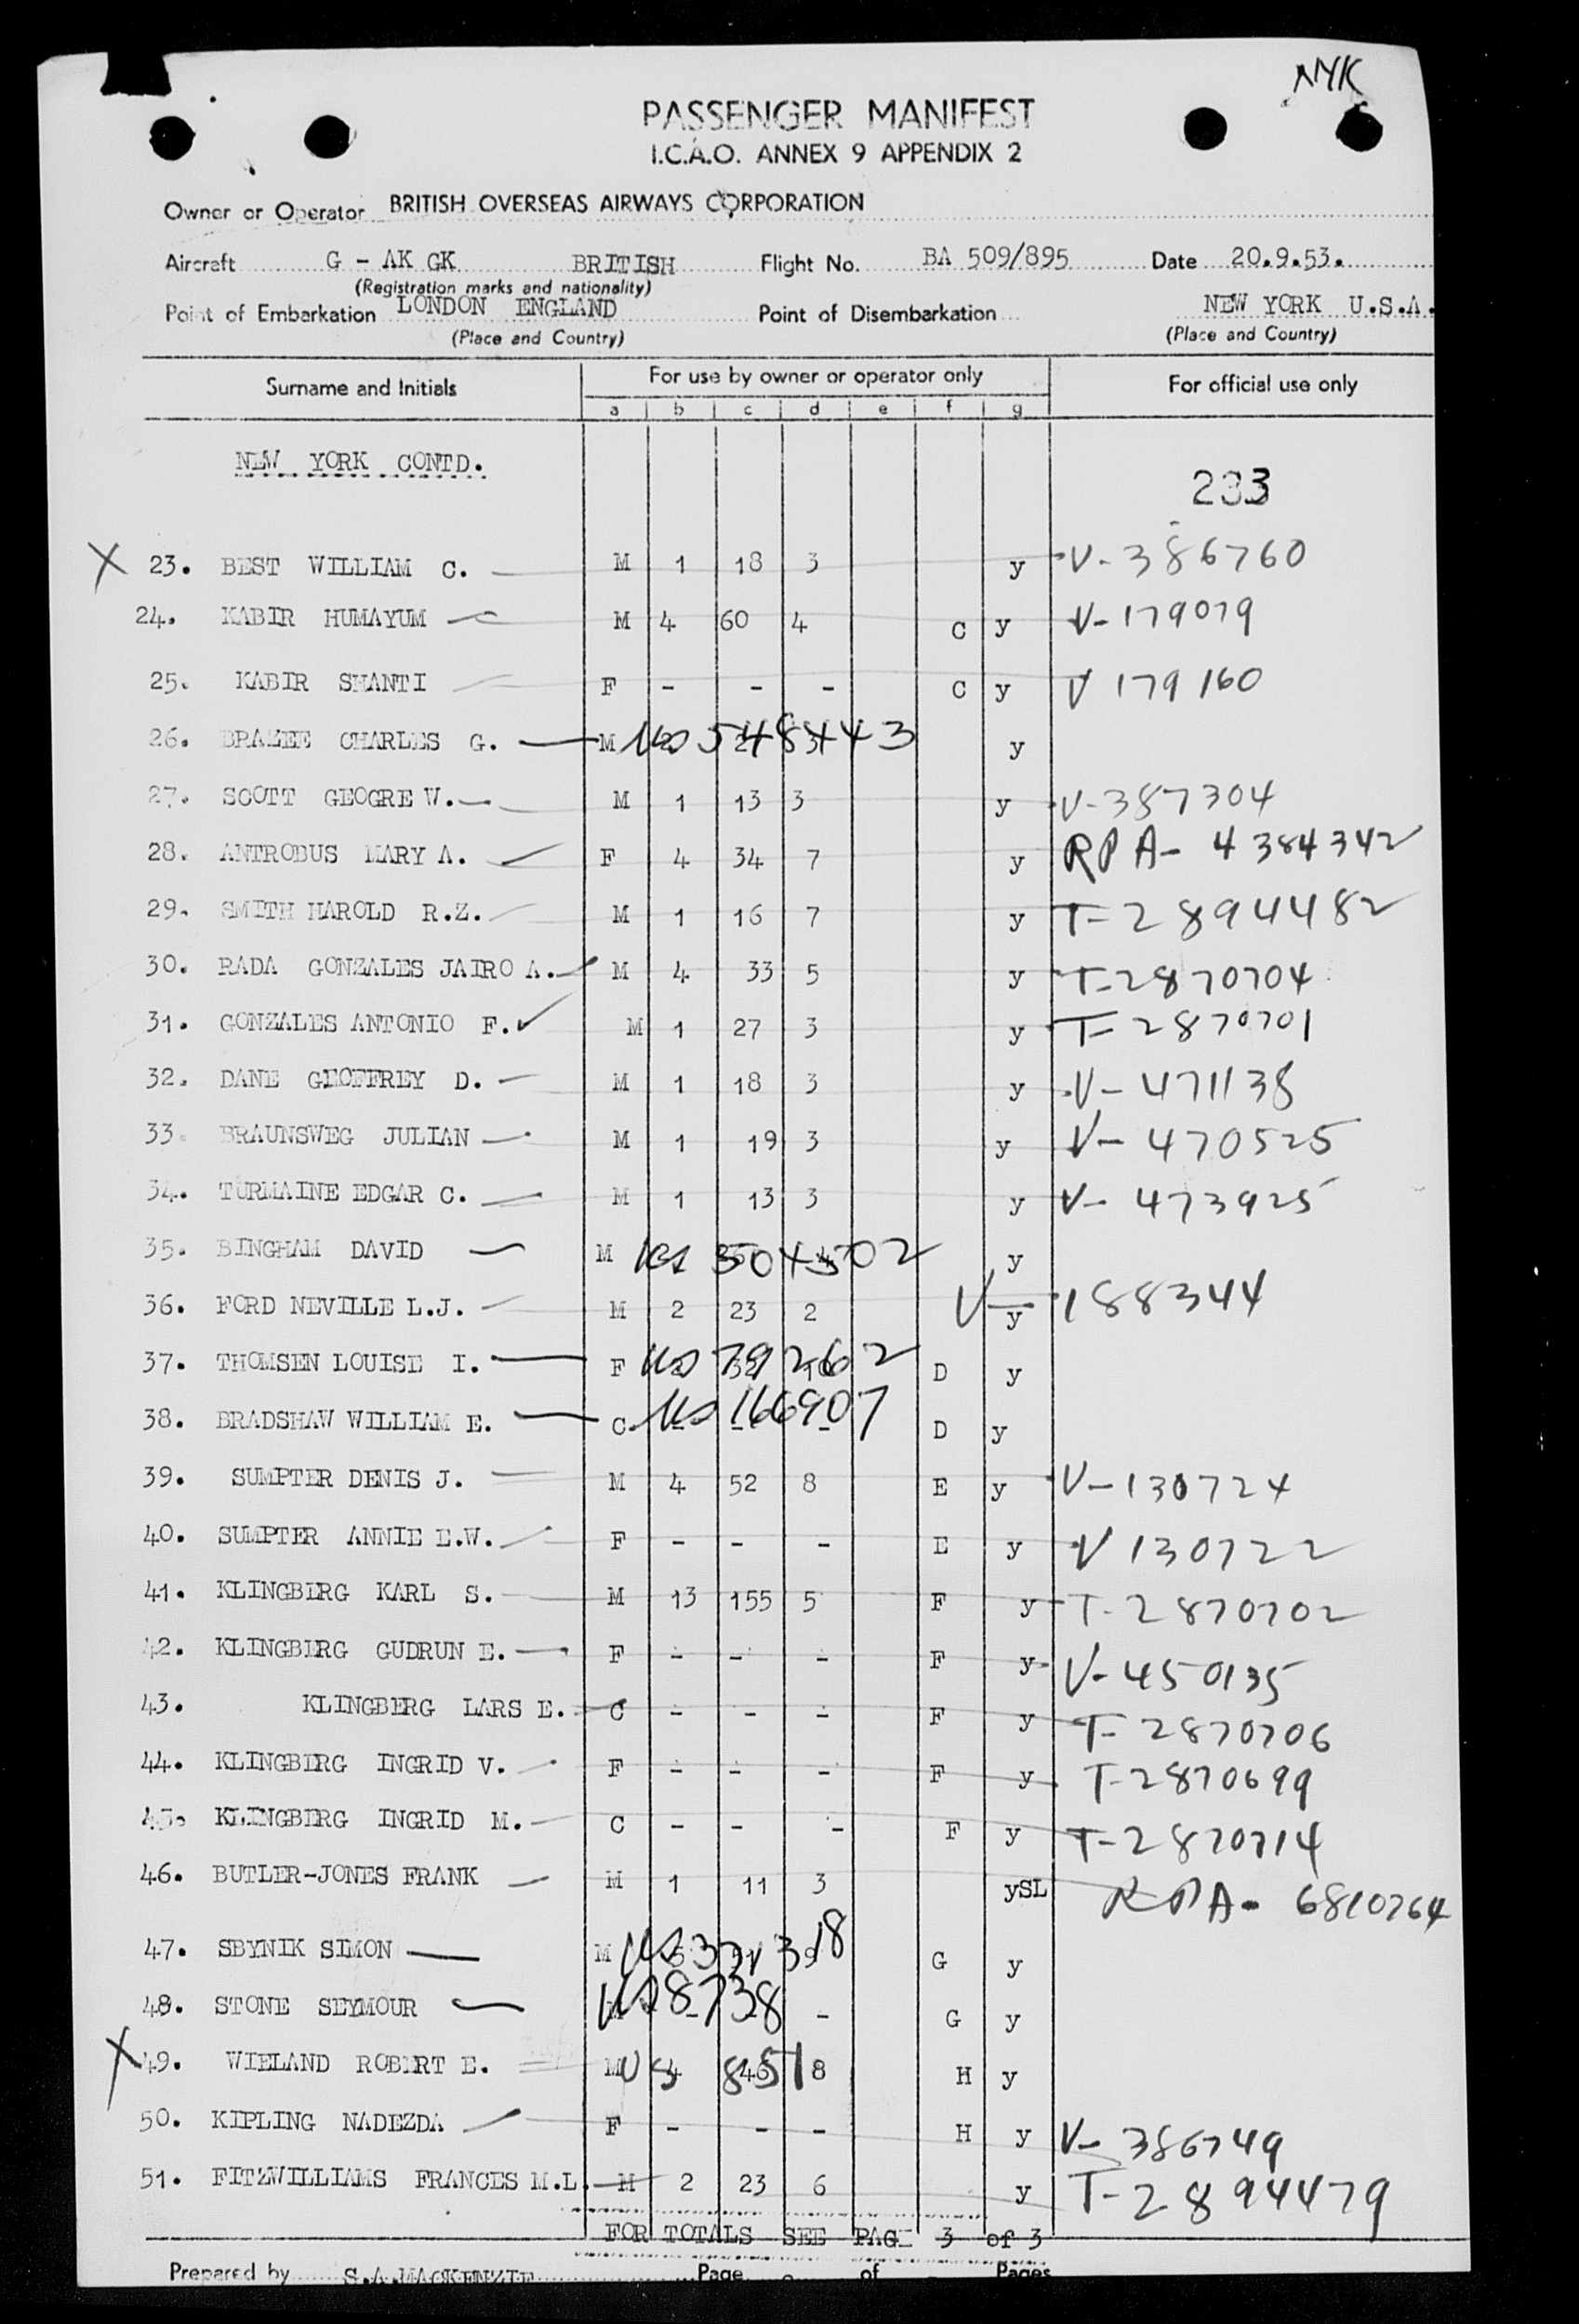 NYK
PASSENGER MANIFEST
I.C.A.O. ANNEX 9 APPENDIX 2
Owner or Operator BRITISH OVERSEAS AIRWAYS CORPORATION
Aircraft G - AK GK BRITISH Flight No. BA 509/895 Date 20.9.53.
(Registration marks and nationality)
Point of Embarkation LONDON ENGLAND Point of Disembarkation NEW YORK U.S.A.
(Place and Country) (Place and Country)
Surname and Initials For use by owner or operator only For official use only
a b c d e f g
NEW YORK CONTD.
233
X 23. BEST WILLIAM C. M 1 18 3 y V-386760
24. KABIR HUMAYUM M 4 60 4 C y V-179079
25. KABIR SHANTI F - - - C y V 179160
26. BRAZEE CHARLES G. M US 548443 y
27. SCOTT GEOGRE W. M 1 13 3 y V-387304
28. ANTROBUS MARY A. F 4 34 7 y RPA-4384342
29. SMITH HAROLD R.Z. M 1 16 7 y T-2894482
30. RADA GONZALES JAIRO A. M 4 33 5 y T-2870704
31. GONZALES ANTONIO F. M 1 27 3 y T-2870701
32. DANE GEOFFREY D. M 1 18 3 y V-471138
33. BRAUNSWEG JULIAN M 1 19 3 y V-470525
34. TURMAINE EDGAR C. M 1 13 3 y V-473925
35. BINGHAM DAVID M y
36. FORD NEVILLE L.J. M 2 23 2 y V-188344
37. THOMSEN LOUISE I. F US 79262 D y
38. BRADSHAW WILLIAM E. C US 166907 - - - D y
39. SUMPTER DENIS J. M 4 52 8 E y V-130724
40. SUMPTER ANNIE E.W. F - - - E y V 130722
41. KLINGBERG KARL S. M 13 155 5 F y T-2870702
42. KLINGBERG GUDRUN E. F - - - F y V-450135
43. KLINGBERG LARS E. C - - - F y T-2870706
44. KLINGBERG INGRID V. F - - - F y T-2870699
45. KLINGBERG INGRID M. C - - - F y T-2870714
46. BUTLER-JONES FRANK M 1 11 3 ySL RPA-6810764
47. SBYNIK SIMON M G y
48. STONE SEYMOUR M US 8738 - - - G y
X 49. WIELAND ROBERT E. M 4 46 8 US 8451 H y
50. KIPLING NADEZDA F - - - H y V-386749
51. FITZWILLIAMS FRANCES M.L. M 2 23 6 y T-2894479
FOR TOTALS SEE PAGE 3 of 3
Prepared by S.A.MACKENZIE Page of Pages